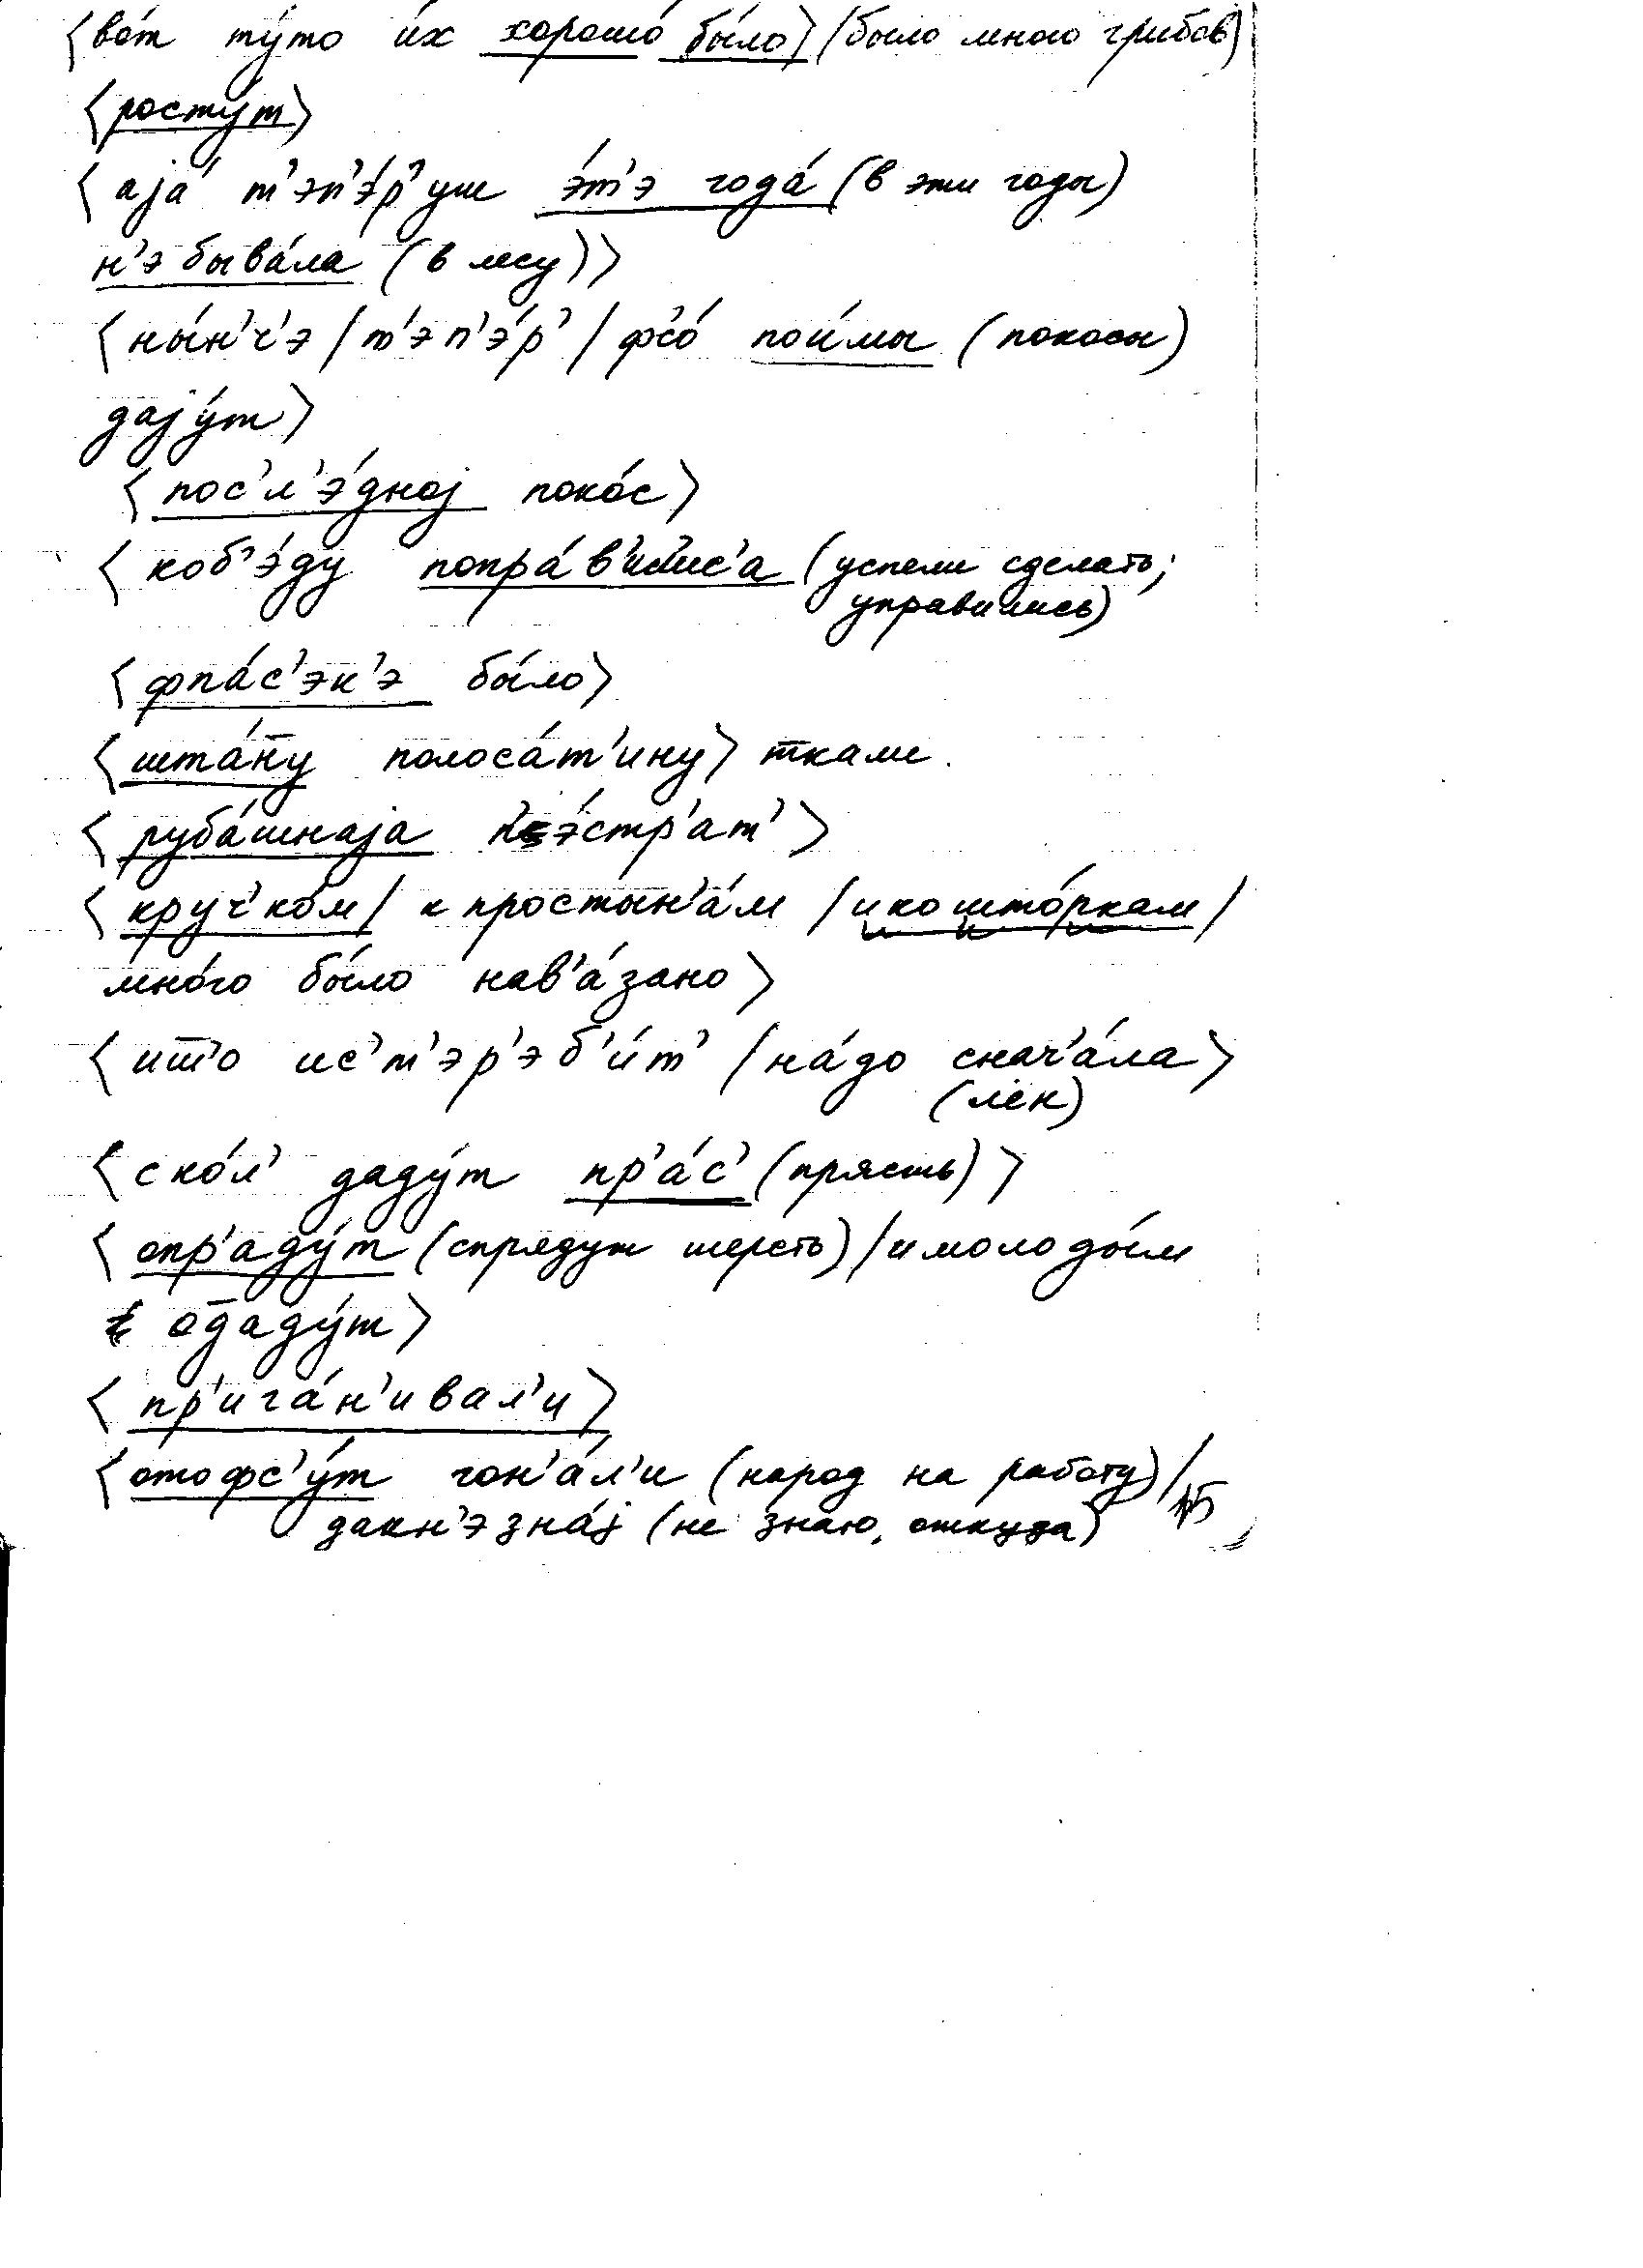 ⟨во́т ту́то и́х хорошо́ бы́ло⟩ (было много грибов)
⟨росту́т⟩
⟨аjа́ т'эп'э́р'уш э́т'э года́ (в эти годы)
н'эбыва́ла (в лесу)⟩
⟨ны́н'ч'э / т'эп'э́р' / фс'о́ пои́мы (покосы)
даjу́т⟩
⟨пос'л'э́дноj поко́с⟩
⟨коб'э́ду попра́в'ил'ис'а (успели сделать;
управились)
⟨фпа́с'эк'э бы́ло⟩
⟨штан̄у́ полоса́т'ину⟩ ткали.
⟨руба́шнаjа п'э́стр'ат'⟩
⟨круч'ко́м / к простын'а́м / икошто́ркам /
мно́го бы́ло нав'а́зано⟩
⟨иш̄'о ис'т'эр'эб'и́т' / на́до снач'а́ла⟩
(лён)
⟨ско́л' даду́т пр'а́с' (прясть)⟩
⟨опр'аду́т (спрядут шерсть) / имолоды́м
од̄аду́т⟩
⟨пр'ига́н'ивал'и⟩
⟨отофс'у́т гон'а́л'и (народ на работу) /
дакн'эзна́j (не знаю, откуда)